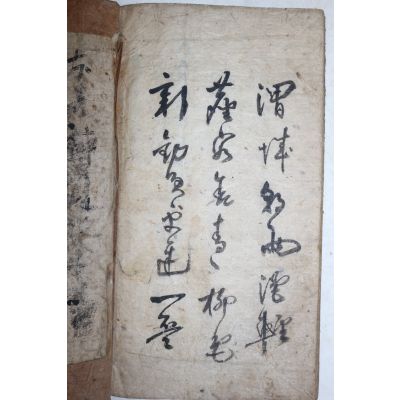 渭城朝雨浥輕
塵客舍青〻柳色
新勸君更進一盃